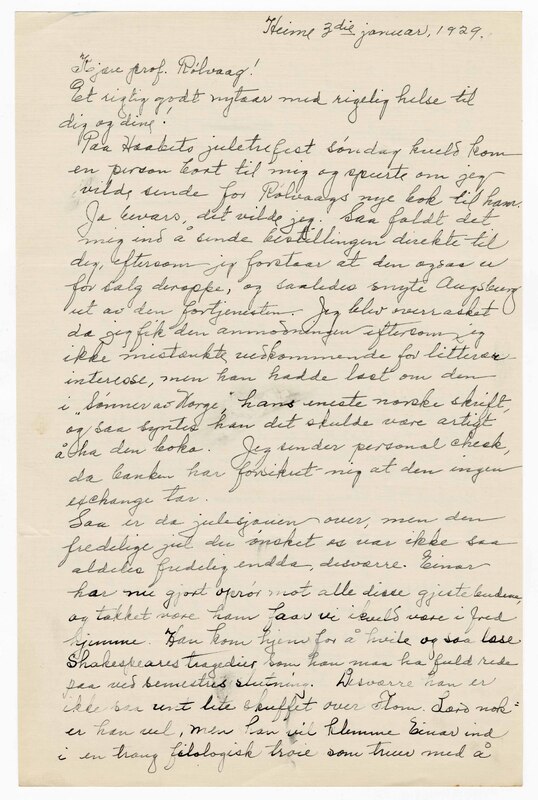 Heime 3die januar, 1929.
Kjære prof. Rølvaag!
Et rigtig godt nytaar med rigelig helse til
dig og dine!
Paa Haabets juletrefest søndag kveld kom
en person bort til mig og spurte om jeg
vilde sende for Rølvaags nye bok til ham.
Ja bevars, det vilde jeg. Saa faldt det
mig ind å sende bestillingen direkte til
dig, eftersom jeg forstaar at den ogsaa er
for salg deroppe, og saaledes snyte Augsburg
ut av den fortjenesten. Jeg blev overrasket
da jeg fik den anmodningen eftersom jeg
ikke mistænkte vedkommende for litterær
interesse, men han hadde læst om den
i "Sønner av Norge", hans eneste norske skrift,
og saa syntes han det skulde være artigt
å ha den boka. Jeg sender personal check,
da banken har forsikret mig at den ingen
exchange tar.
Saa er da julesjauen over, men den
fredelige jul du ønsket os var ikke saa
aldeles fredelig endda, desværre. Einar
har nu gjort oprør mot alle disse gjestebudene,
og takket være ham faar vi ikveld være i fred
hjemme. Han kom hjem for å hvile og saa læse
Shakespeares tragedier som han maa ha fuld rede
paa ved semestrets slutning. Desværre han er
ikke saa rent lite skuffet over Flom. Lærd nok
er han vel, men han vil klemme Einar ind
i en trang filologisk trøie som truer med å